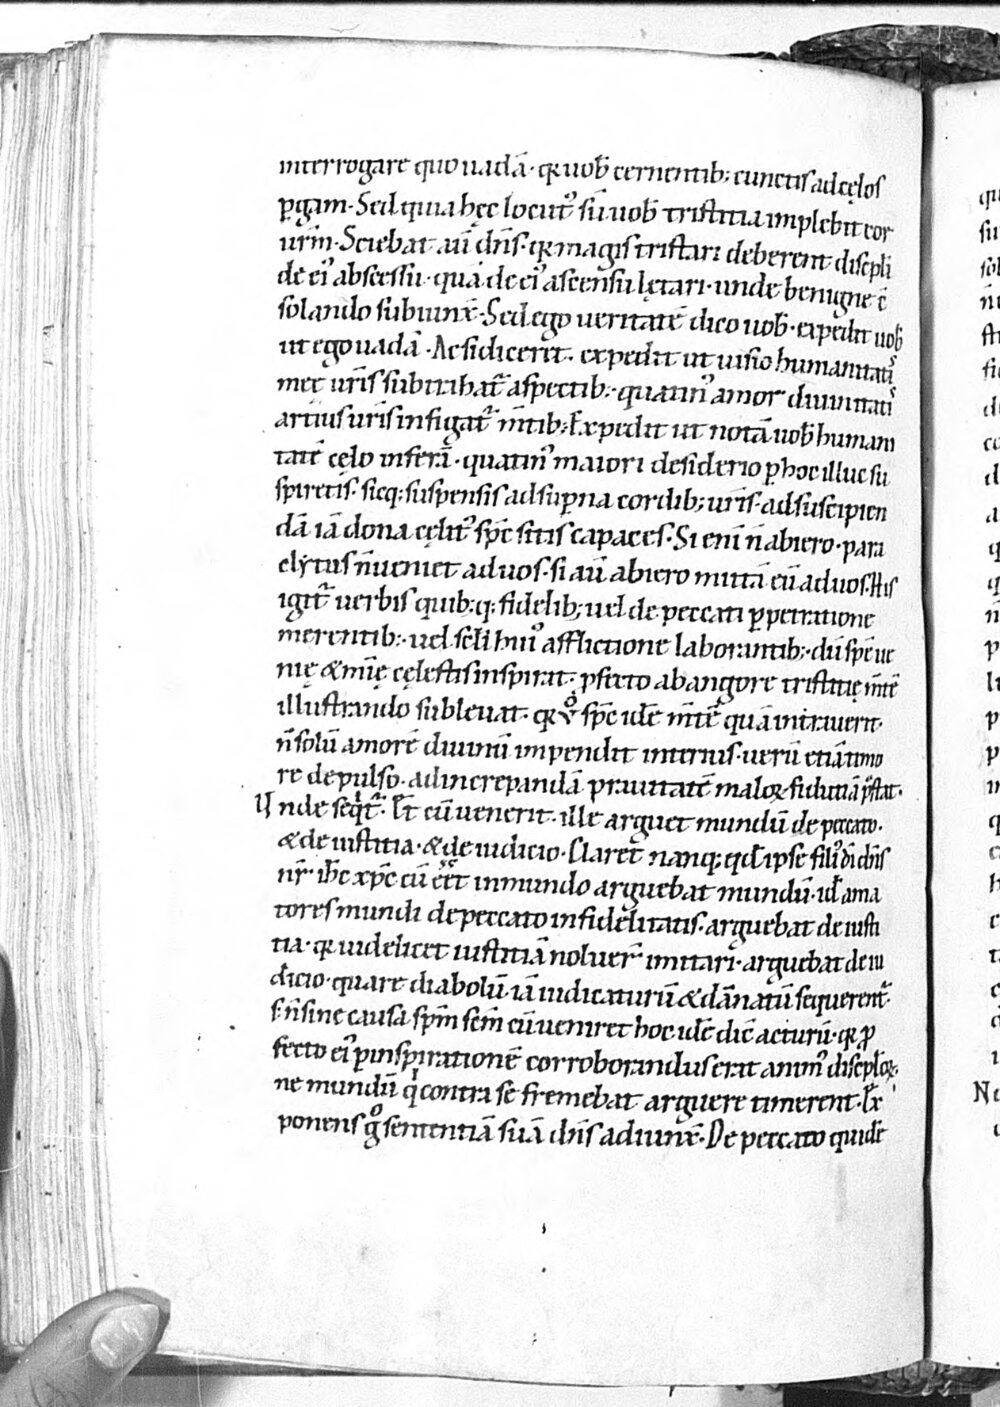 interrogare quo uadā· qꝛ uob̄ cernentib; cunctis ad cęlos
ꝑgam· Sed quia hęc locut᷒ sū uob̄ tristitia impleuit cor
urm̄· Sciebat aū dn̄s· qꝛ magis tristari deberent discipl̄i
de ei᷒ abscessu· quā de ei᷒ ascensu lętari· unde benigne c̄
solando subiunx̄· Sed ego ueritatē dico uob̄· expedit uob̄
ut ego uadā· Ac si dicerit· expedit ut uisio humanitati᷒
meę uris̄ subtrahat᷑ aspectib;· quatin᷒ amor diuinitati᷒
artius uris̄ infigat᷑ m̄tib; Expedit ut notā uob̄ humani
tatē cęlo inferā· quatin᷒ maiori desiderio ꝑ hoc illuc su
spiretis· sicq; suspensis ad suꝑna cordib; uris̄· ad suscipien
da iā dona cęlit᷒ sp̄c sitis capaces· Si eni n̄ abiero· para
clytus n̄ ueniet ad uos· si aū abiero mittā eū ad uos· His
igit᷑ uerbis quib;q; fidelib; uel de peccati ꝑpetratione
merentib;· uel sc̄li hui᷒ afflictione laborantib;· dū spē ue
nię & mīę cęlestis inspirat· ꝓfecto ab angore tristitię m̄tē
illustrando subleuat· qꝛ v̊ sp̄c idē m̄tē quā intrauerit·
n̄ solū amorē diuinū impendit internis· uerū etiā timo
re depulso· ad increpandā prauitatē maloꝝ fidutiā p̄stat·
Unde seqͥt᷑· Et cū uenerit· ille arguet mundū de peccato·
& de iustitia· & de iudicio· Claret nanq; qd̄ ipse fili᷒ dī dn̄s
nr̄· ih̄c xp̄c cū eēt in mundo arguebat mundū· id̄ ama
tores mundi de peccato infidelitatis· arguebat de iusti
tia· qꝛ uidelicet iustitiā noluer̄ imitari· arguebat de iu
dicio· quare diabolū iā iudicaturū & dānatū sequerent᷑·
s; n̄ sine causa sp̄m sc̄m cū ueniret hoc idē dic̄ acturū· qꝛ ꝓ
fecto ei᷒ ꝑ inspirationē corroborandus erat anim᷒ discipl̄oꝝ·
ne mundū qͥ contra se fremebat arguere timerent· Ex
ponens gͦ sententiā suā dn̄s adiunx̄· De peccato quidē